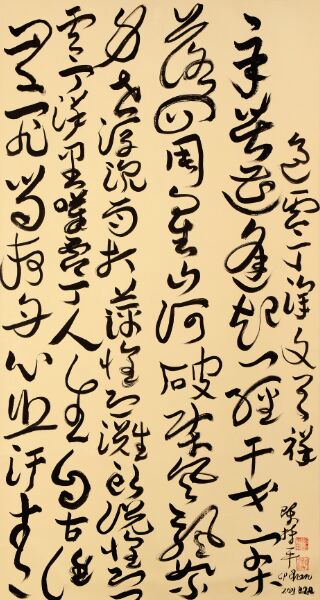 過零丁洋 文天祥
辛苦遭逢起一經干戈寥
落四周星山河破碎風飄絮
身世浮沉雨打萍惶恐灘頭說惶恐
零丁洋里嘆零丁人生自古誰
無死留取丹心照汗青
CP Chan